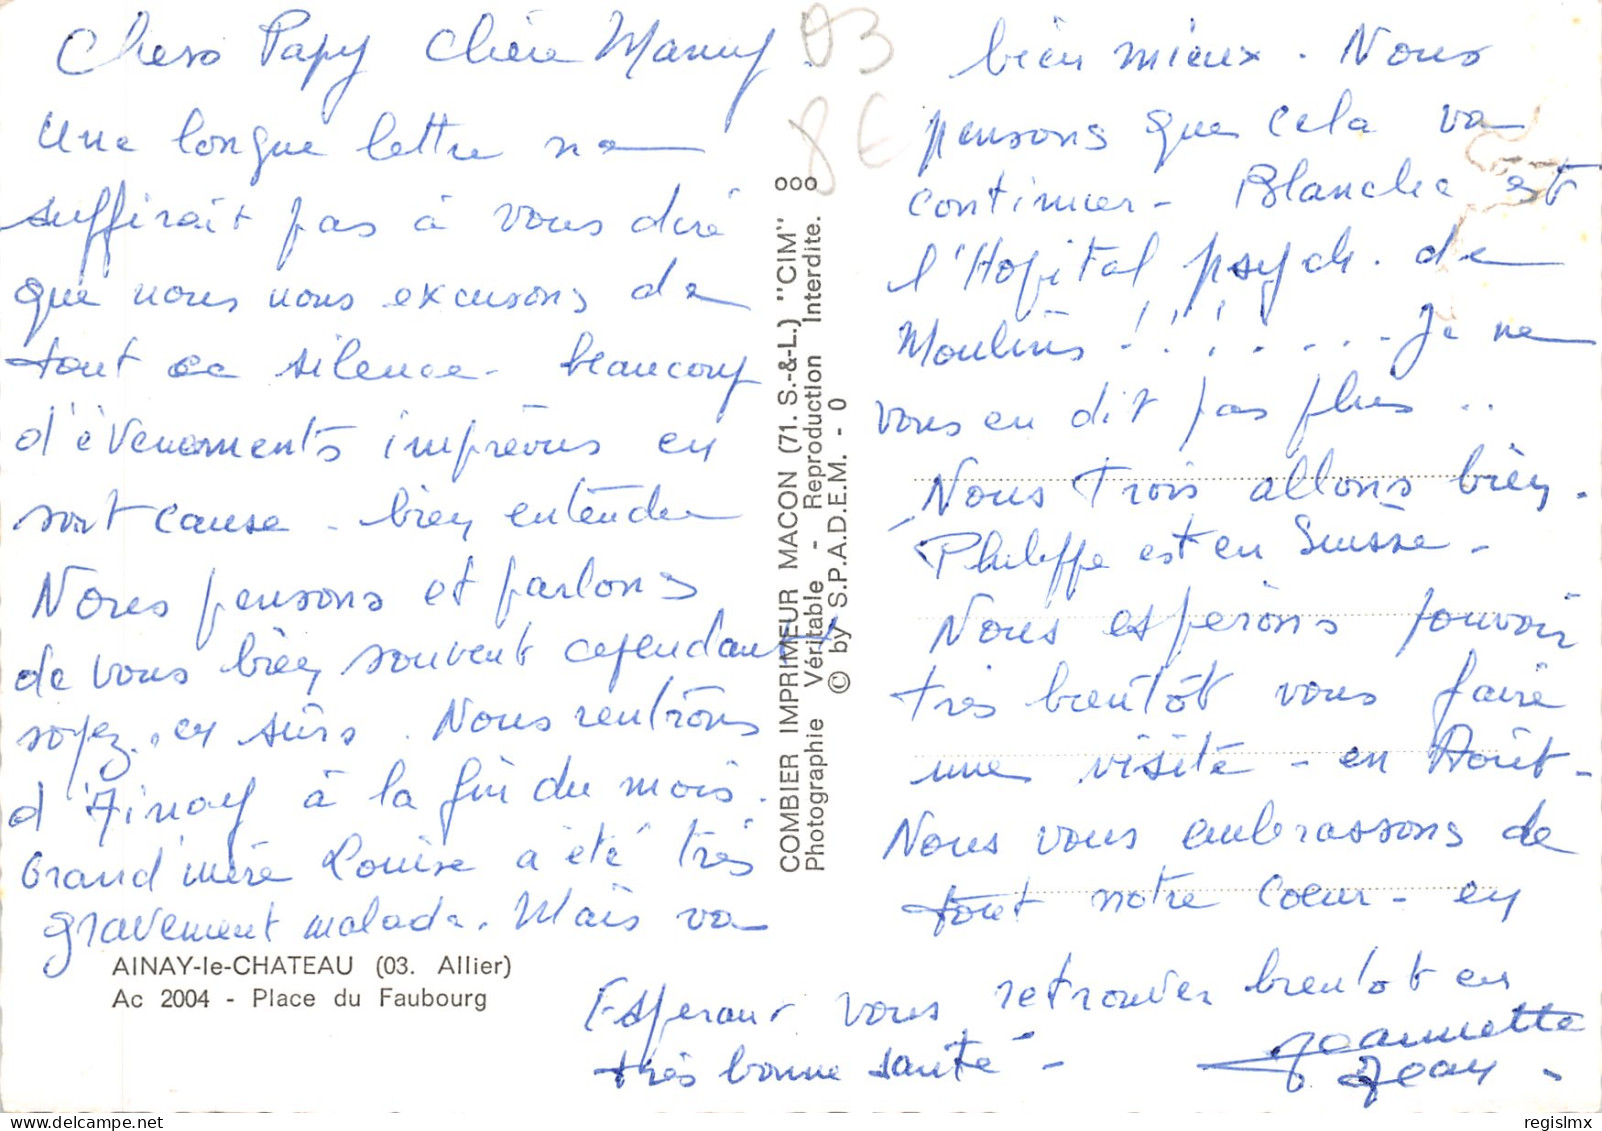 Chers Papy Chère Mamy.
Une longue lettre ne
suffirait pas à vous dire
que nous nous excusons de
tout ce silence - beaucoup
d'évènements imprévus en
sont cause - bien entendu
Nous pensons et parlons
de vous bien souvent cependant
soyez-en sûrs. Nous rentrons
d'Ainay à la fin du mois.
Grand'mère Louise a été très
gravement malade. Mais va
AINAY-le-CHATEAU (03. Allier)
Ac 2004 - Place du Faubourg
COMBIER IMPRIMEUR MACON (71. S.-&-L.) "CIM"
Photographie Véritable - Reproduction Interdite.
© by S.P.A.D.E.M. - 0
ooo
03
8€
bien mieux. Nous
pensons que cela va
continuer - Blanche est
l'Hopital psych. de
Moulins !!!..... Je ne
vous en dit pas plus..
Nous trois allons bien.
Philippe est en Suisse -
Nous espérons pouvoir
très bientôt vous faire
une visite - en Août -
Nous vous embrassons de
tout notre coeur - en
Esperant vous retrouver bientot en
très bonne santé -
Jeannette
Jean
regislmx